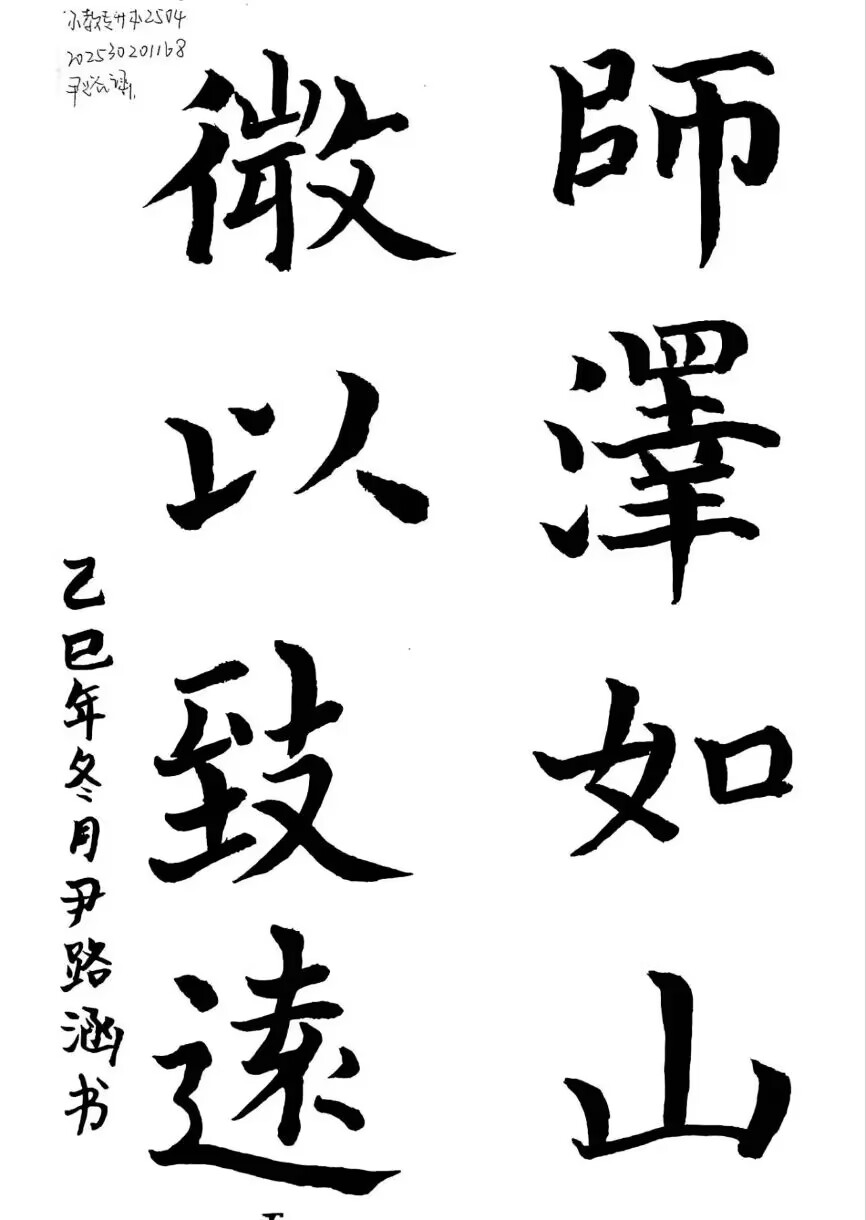 小教专升本2504
202530201168
尹路涵
師澤如山
微以致遠
乙巳年冬月尹路涵书